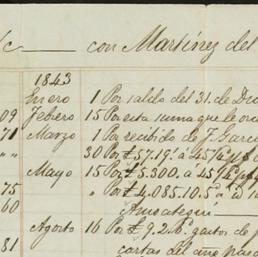 /c ___ con Martinez del
1843
Enero 1 Por saldo del 31. de
09 Febrero 15 Por esta suma que le
71 Marzo 1 Por recibido de F. Garc
" " 30 Por £57.19.' á 45
Mayo 15 Por £5.300. á 45
75 " Por £4.085.10.5 á
60
Agosto 16 Por £9.2.6. gastos de
81 cartas del año pasa